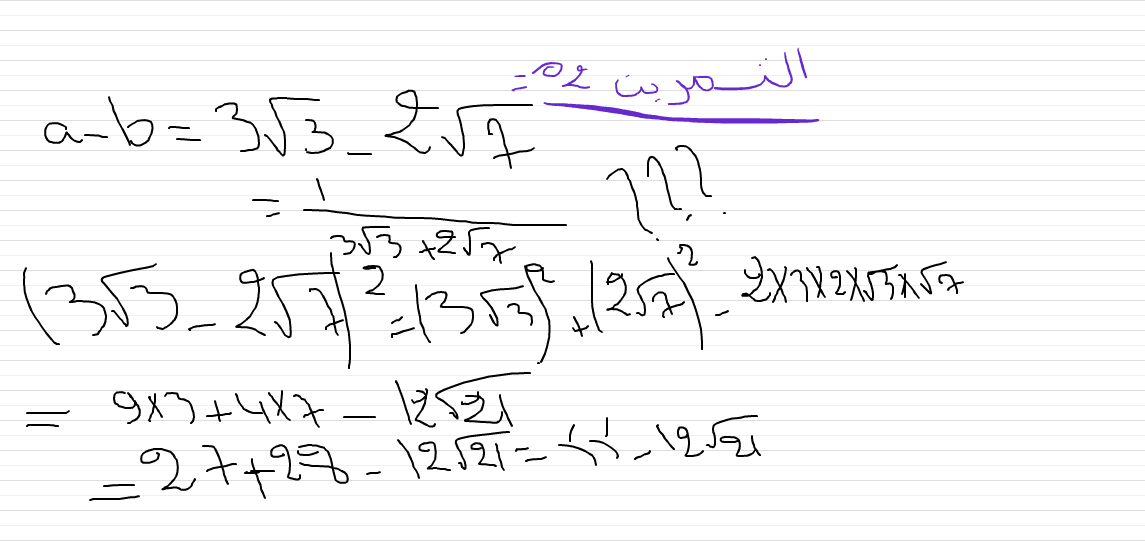 التمرين 02=
a-b = 3√3 - 2√7
= 1/(3√3 + 2√7) ???
(3√3 - 2√7)² = (3√3)² + (2√7)² - 2×3×2×√3×√7
= 9×3+4×7 - 12√21
= 27+28 - 12√21 = - 12√21